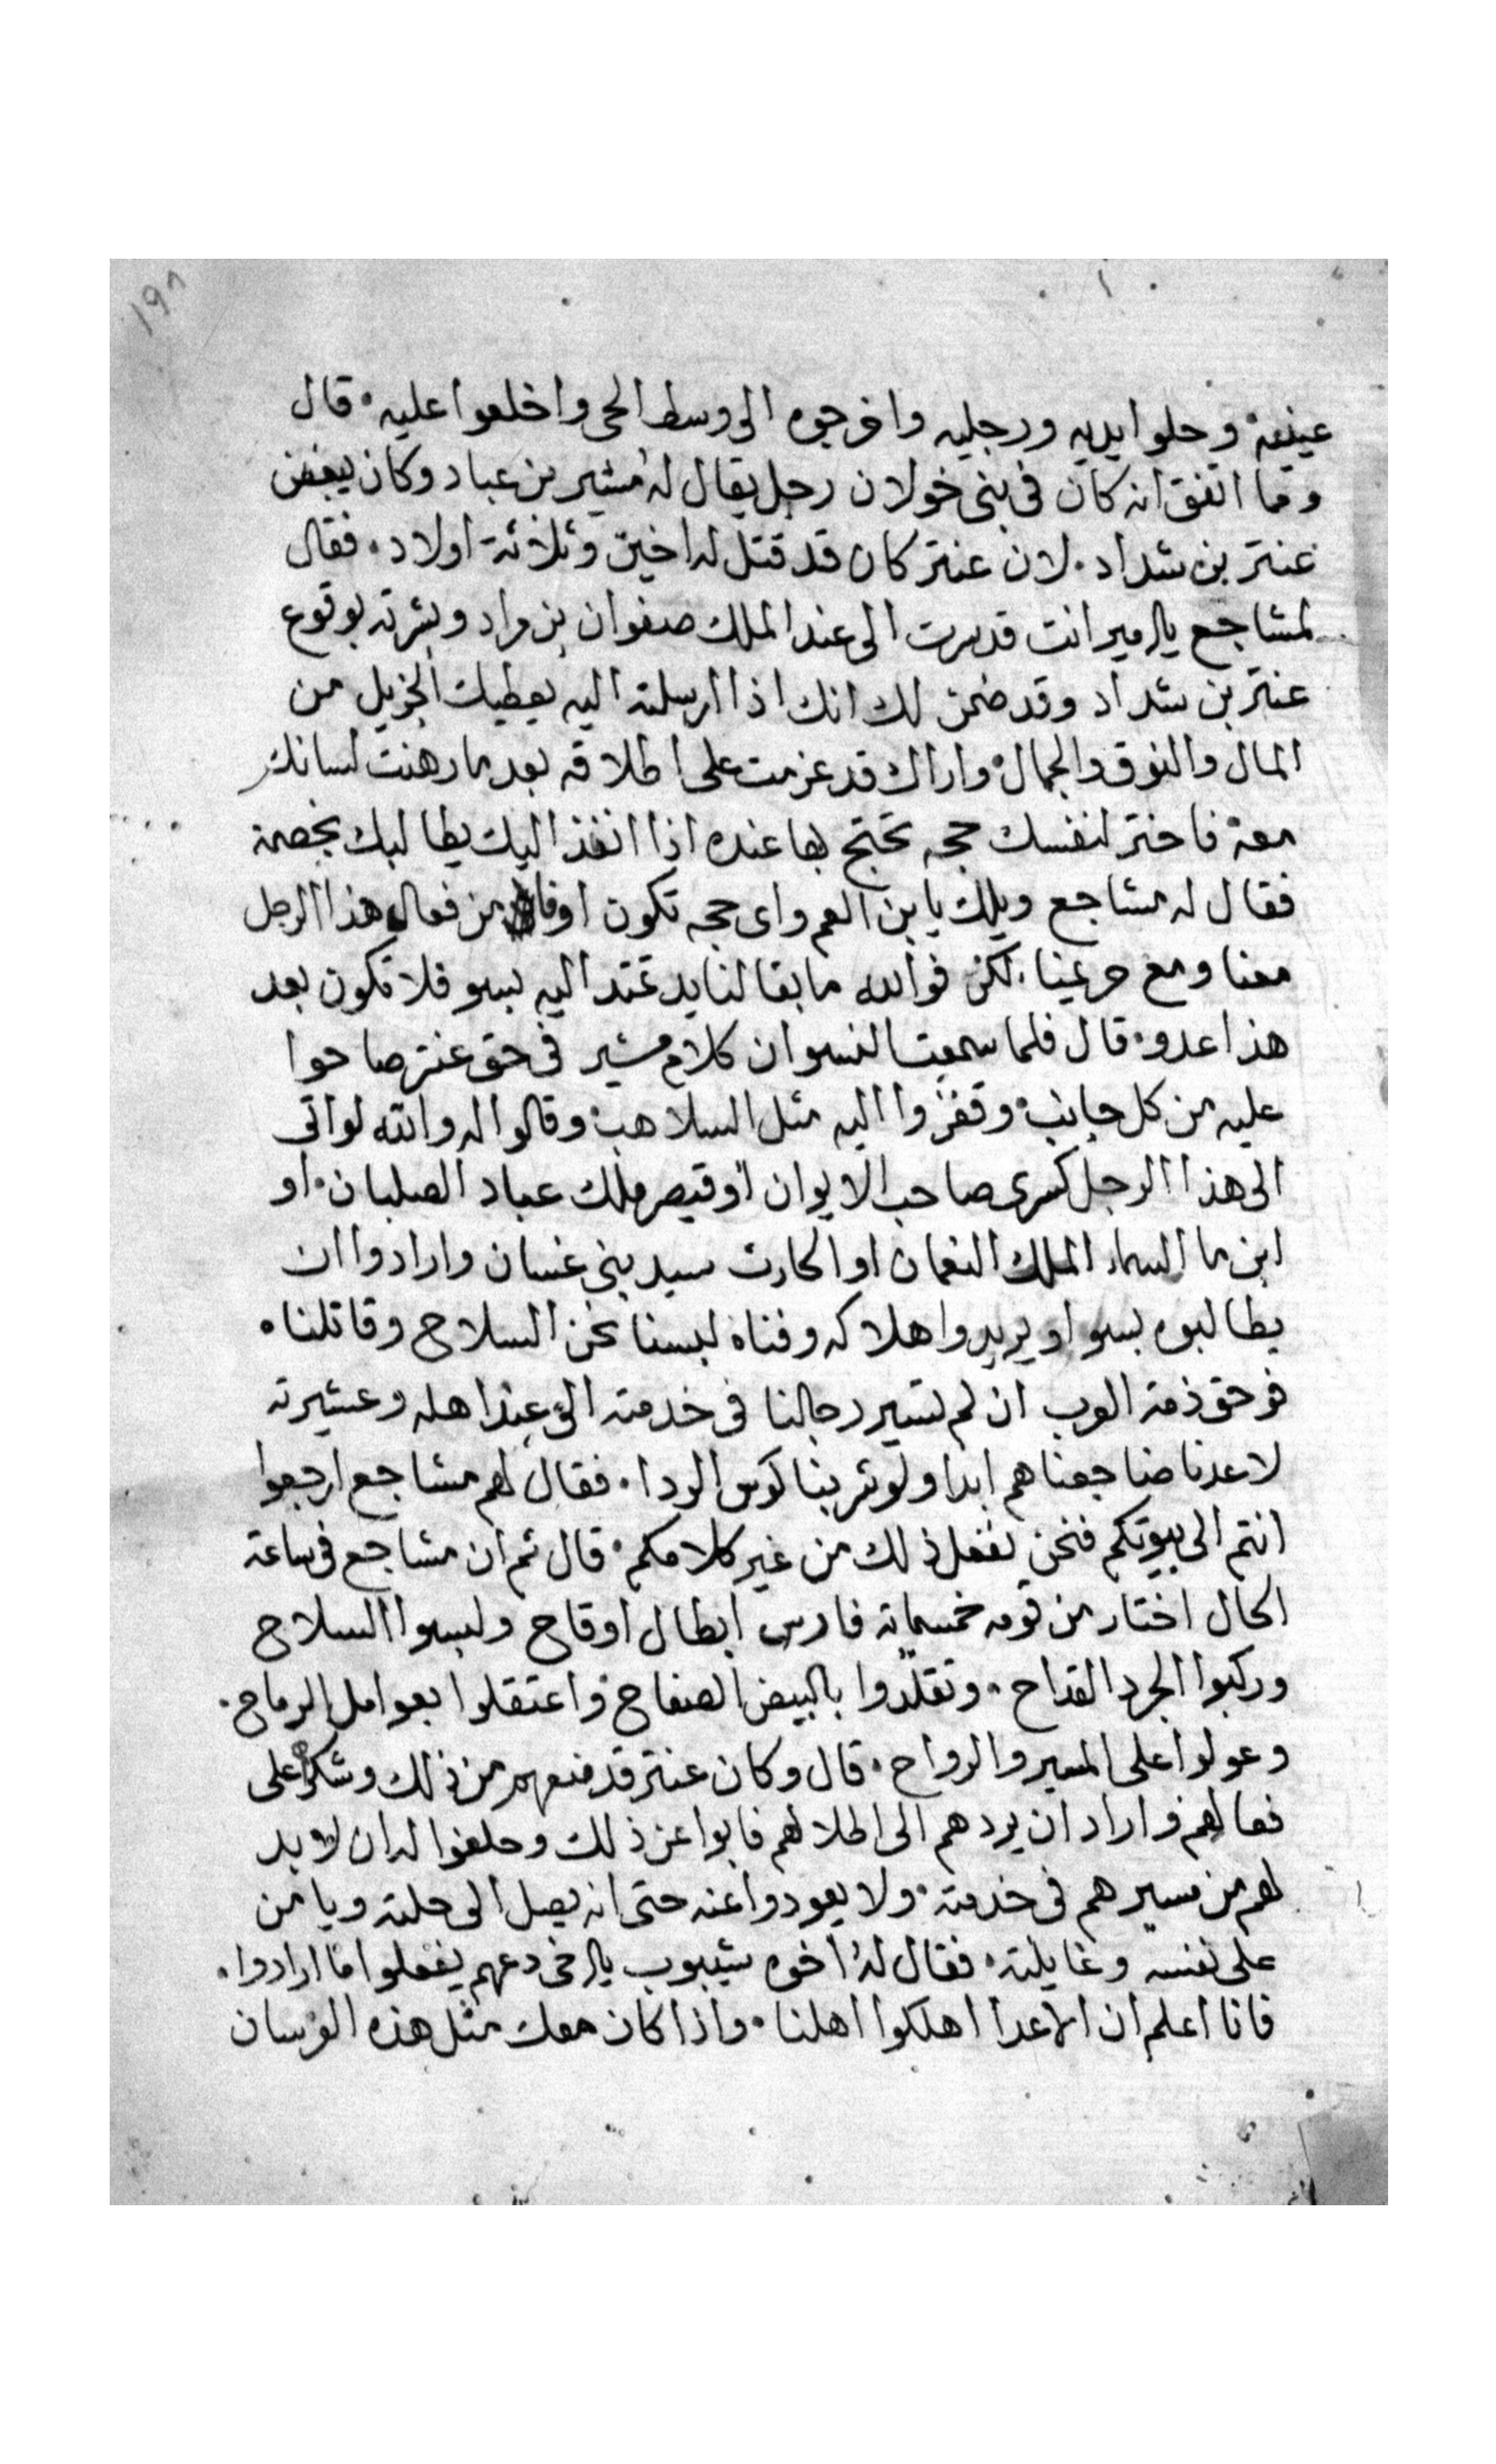 ١٩٨
عنيفة وحلوا ايديه ورجليه واخرجوه الى وسط الحى واخلعوا عليه. قال
ومما اتفق انه كان فى بنى خولان رجل يقال له مشير بن عباد وكان يبغض
عنتر بن شداد. لان عنتر كان قد قتل له اخين وثلاثة اولاد. فقال
لمشاجع يالامير انت قد سرت الى عند الملك صفوان بن مراد وبشرته بوقوع
عنتر بن شداد وقد ضمن لك انك اذا ارسلته اليه يعطيك الجزيل من
المال والنوق والجمال. واراك قد عزمت على اطلاقه بعد ما رهنت لسانك
معه فاختر لنفسك حجه تحتج بها عنده اذا انفذ اليك يطالبك بخصمه
فقال له مشاجع ويلك يابن العم واى حجه تكون اوفا من فعال هذا الرجل
معنا ومع حريمنا. لكن فوالله ما بقا لنا يد تمتد اليه بسو فلا تكون بعد
هذا عدو. قال فلما سمعت النسوان كلام مشير فى حق عنتر صاحوا
عليه من كل جانب. وقفزوا اليه مثل السلاهب. وقالوا له والله لو اتى
الى هذا الرجل كسرى صاحب الايوان او قيصر ملك عباد الصلبان. او
ابن ما السماء الملك النعمان او الحارث سيد بنى غسان وارادوا ان
يطالبوه بسوا ويريدوا هلاكه وفناه لبسنا نحن السلاح وقاتلناه
فوحق ذمة العرب ان لم تسير رجالنا فى خدمته الى عند اهله وعشيرته
لا عدنا ضاجعناهم ابدا ولو شربنا كوس الردا. فقال لهم مشاجع ارجعوا
انتم الى بيوتكم فنحن نفعل ذلك من غير كلامكم. قال ثم ان مشاجع فى ساعة
الحال اختار من قومه خمسماية فارس ابطال اوقاح ولبسوا السلاح
وركبوا الجرد القداح. وتقلدوا بالبيض الصفاح واعتقلوا بعوامل الرماح.
وعولوا على المسير والرواح. قال وكان عنتر قد منعهم من ذلك وشكرهم على
فعالهم واراد ان يردهم الى اطلالهم فابوا عن ذلك وحلفوا له ان لا بد
لهم من مسيرهم فى خدمته. ولا يعودوا عنه حتى انه يصل الى حلته ويامن
على نفسه وغايلته. فقال له اخوه شيبوب يالاخى دعهم يفعلوا ما ارادوا.
فانا اعلم ان الاعدا اهلكوا اهلنا. واذا كان معك مثل هذه الفرسان